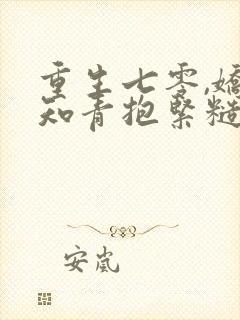 重生七零,嬌
知青抱緊糙
安嵐